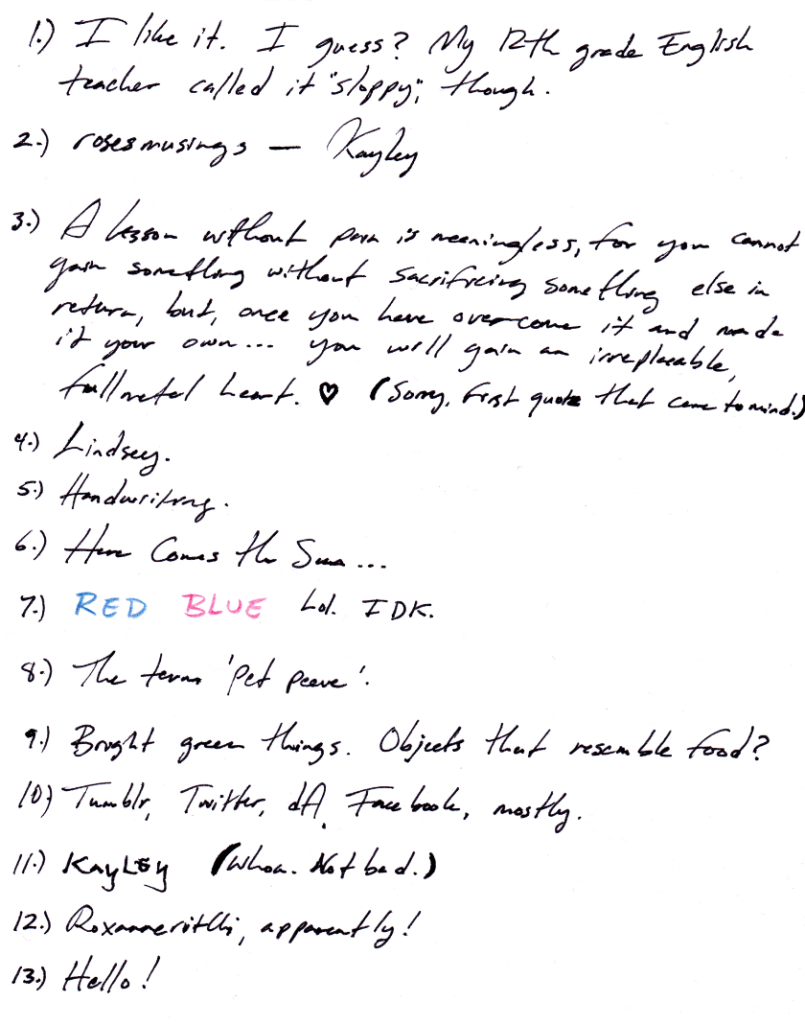 1.) I like it. I guess? My 12th grade English
teacher called it "sloppy", though.
2.) rosesmusings — Kayley
3.) A lesson without pain is meaningless, for you cannot
gain something without sacrificing something else in
return, but, once you have overcome it and made
it your own... you will gain an irreplaceable,
fullmetal heart. ♡ (Sorry, first quote that came to mind.)
4.) Lindsey.
5.) Handwriting.
6.) Here Comes the Sun...
7.) RED BLUE Lol. IDK.
8.) The term 'pet peeve'.
9.) Bright green things. Objects that resemble food?
10.) Tumblr, Twitter, dA, Facebook, mostly.
11.) KAyLEy (Whoa. Not bad.)
12.) apparently!
13.) Hello!